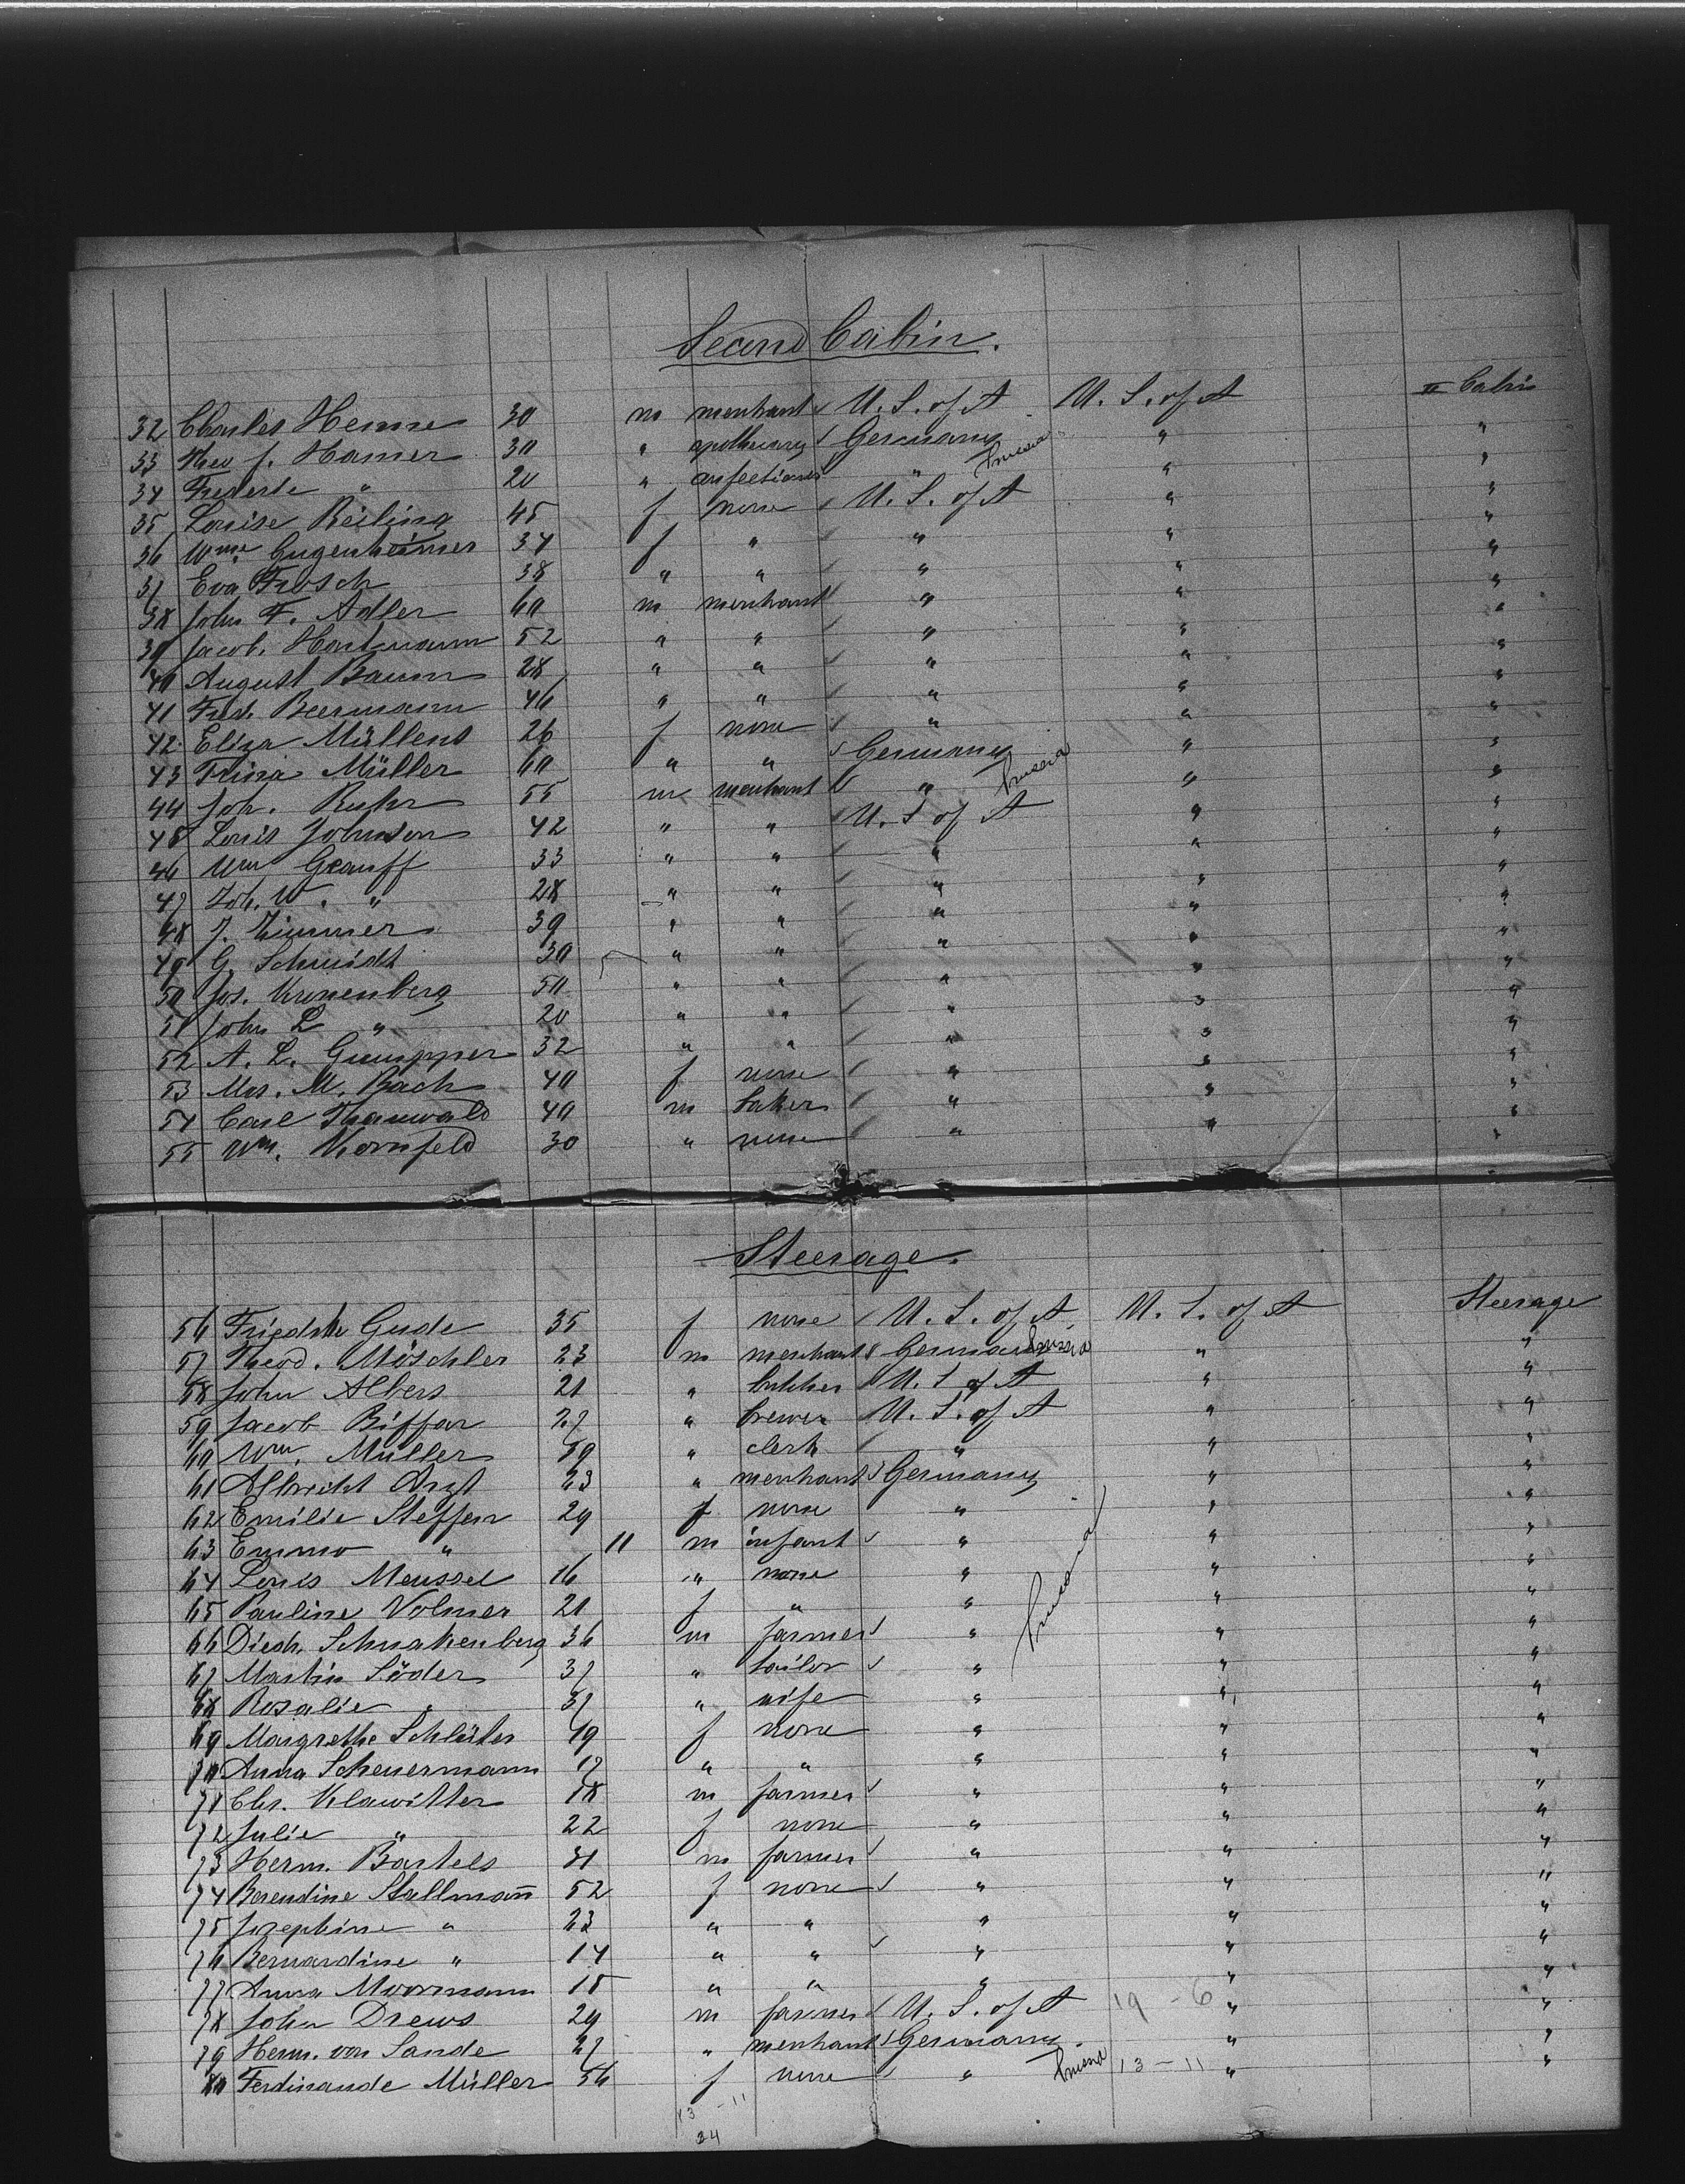 Second Cabin.
32 Charles Henne 30 m merchant U. S. of A U. S. of A II Cabin
33 Theo J. Hamer 30 " apothecary Germany " "
34 Frederke " 20 " confectioner " Prussia " "
35 Louise Reiling 45 f none U. S. of A " "
36 Wme Gugenheimer 34 f " " " "
37 Eva Frosch 38 " " " " "
38 John F. Adler 60 m merchant " " "
39 Jacob. Hartmann 52 " " " " "
40 August Baum 28 " " " " "
41 Fred. Beermann 46 " " " " "
42 Eliza Müllens 26 f none " " "
43 Trina Müller 60 " " Germany " "
44 Joh. Ruhr 55 m merchant " Prussia " "
45 Louis Johnson 42 " " U. S of A " "
46 Wm Grauff 33 " " " " "
47 Joh. W. " 28 " " " " "
48 J. Zimmer 39 " " " " "
49 G. Schmidt 30 " " " " "
50 Jos. Kronenberg 50 " " " " "
51 John L " 20 " " " " "
52 A. L. Gumpper 32 " " " " "
53 Mrs. M. Bach 40 f none " " "
54 Carl Thauwald 40 m baker " " "
55 Wm. Kornfeld 30 " none " " "
Steerage.
56 Friedrke Gude 35 f none U. S. of A U. S. of A Steerage
57 Theod. Möschler 23 m merchant Germany Prussia " "
58 John Albers 21 " butcher U. S of A " "
59 Jacob Biffar 27 " brewer U. S. of A " "
60 Wm. Müller 59 " clerk " " "
61 Albrecht Arzt 23 " merchant Germany " "
62 Emilie Steffen 29 f none " " "
63 Emmo " 11 m infant " " "
64 Louis Meussel 16 " none " Prussia " "
65 Pauline Volmer 21 f " " " "
66 Diedr. Schnakenberg 36 m farmer " " "
67 Martin Söder 37 " tailor " " "
68 Rosalie " 37 " wife " " "
69 Margrethe Schlüter 19 f none " " "
70 Anna Scheuermann 17 " " " " "
71 Chr. Klawitter 18 m farmer " " "
72 Julie " 22 f none " " "
73 Herm. Bartels 31 m farmer " " "
74 Berendine Stallmañ 52 f none " " "
75 Josephine " 23 " " " " "
76 Bernardine " 14 " " " " "
77 Anna Moormann 18 " " " " "
78 John Drews 29 m farmer U. S. of A 19 - 6 " "
79 Herm. von Sande 27 " merchant Germany " "
80 Ferdinande Müller 56 f none " Prussia 13 - 11 " "
13 - 11
24